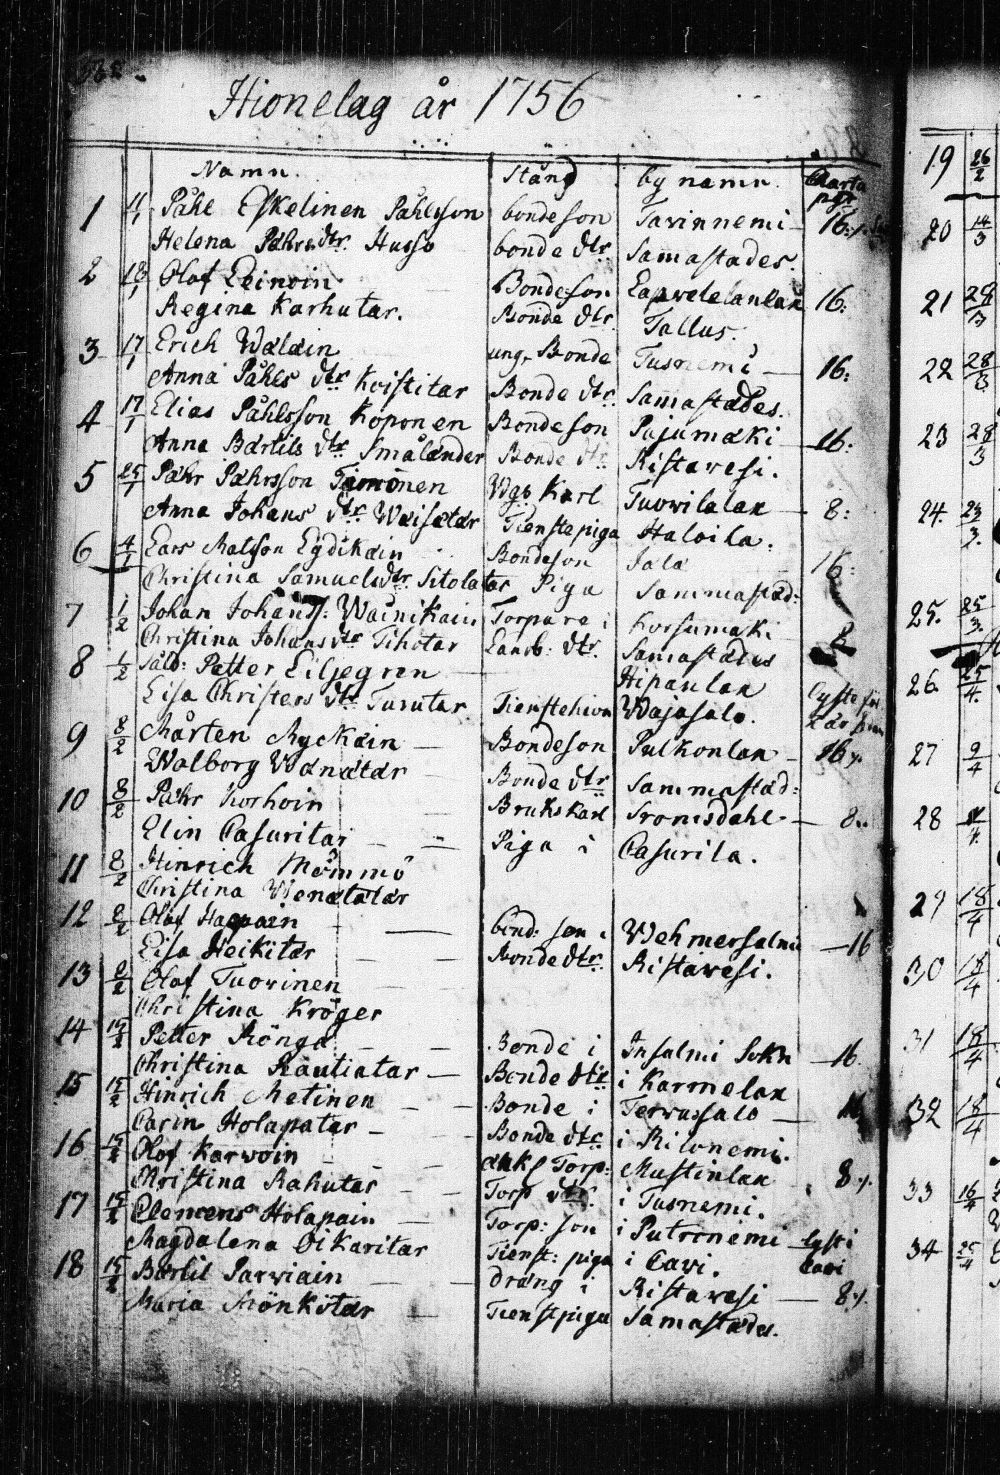 Hionelag år 1756
Namn. Stånd by namn. Charta pgr
1 11/1 Påhl Eskelinen Påhlsson bondeson Tavinnemi 16:
Helena Påhrsdtr Husso bonde dtr Samastades.
2 18/1 Olof Leinoin Bondeson Lapvetelanlax 16:
Regina Karhutar. Bonde dtr Tallus.
3 17/1 Erich Wälain ung Bonde Tusnemi 16:
Anna Påhls dtr Koistitar Bonde dtr Samastades.
4 17/1 Elias Påhlsson Koponen Bondeson Pajumäki 16:
Anna Bärtils dtr Smålander Bonde dtr Ristavesi.
5 25/1 Påhr Påhrsson Timonen Karl Tuovilalax 8:
Anna Johans dtr Waisatar Tienstepiga Haloila.
6 4/1 Lars Matsson Lydikain Bondeson Jala 16:
Christina Samuelsdtr Sitolatar Piga Sammastad:
7 1/2 Johan Johans: Wainikain Torpare i Korsumaki
Christina Johansdtr Tihotar Landb: dtr. Samastades
8 1/2 Sald: Petter Liljegren Hipanlax
Lisa Christers dtr Turutar Tienstehion Wajasalo. lyste
9 8/2 Mårten Myckäin Bondeson Pulkonlax 16
Walborg Wänätär Bonde dtr Sammastad:
10 8/2 Påhr Korhoin Brukskarl Stromsdahl 8..
Elin Casuritar Piga i Casurila.
11 8/2 Hinrich Mömmö
Christina Wenätatär
12 8/2 Olof Haapain bond: son i Wehmersalmi 16
Lisa Heikitar Bonde dtr Ristavesi.
13 8/2 Olof Tuovinen
Christina Kröger
14 15/2 Petter Rönga Bonde i Insalmi Sokn 16
Christina Rautiatar Bonde dtr i Karmelax
15 15/2 Hinrich Metinen Bonde i Tervassalo 16
Carin Holapatar Bonde dtr i Ritonemi.
16 15/2 Olof Karvoin Torp: Mustinlax 8
Christina Rahutar Torp dtr i Tusnemi.
17 15/2 Clemens Holapain Torp: son i Putronemi lysti
Magdalena Oikaritar Tienst: piga i Cavi. Cavi
18 15/2 Bärtil Parviain dräng i Ristavesi 8
Maria Mönkötär Tienstpiga Samastades.
19 26/2
20 14/3
21 28/3
22 28/3
23 28/3
24. 23/3.
25. 25/3.
26. 25/4.
27 9/4
28
29 18/4
30 18/4
31 18/4
32 18/4
33 16/4
34 25/4